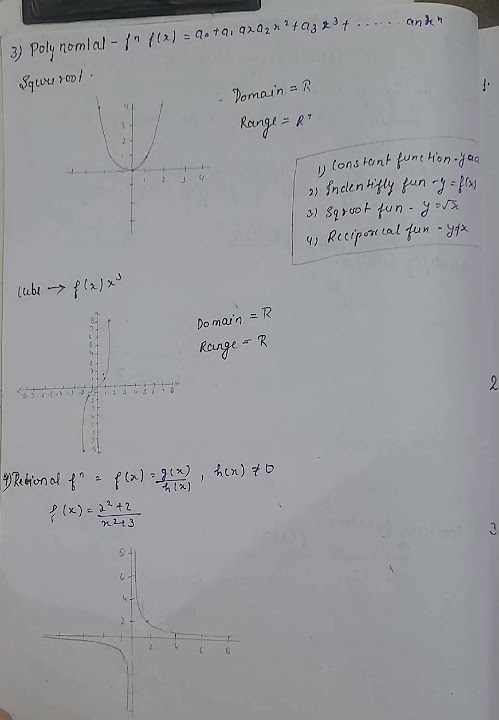 3) Polynomial - fⁿ f(x) = a₀+a₁ax a₂x²+a₃x³+ ...... anxⁿ
Squreroot.
Domain = R
Range = R⁺
1) Constant function -
2) Indentifly fun - y = f(x)
3) Sqroot fun - y = √x
4) Reciporical fun -
cube → f(x)x³
Domain = R
Range = R
4) Rational fⁿ = f(x) = g(x)/h(x), h(x) ≠ 0
f(x) = x²+2/x²+3
2
3